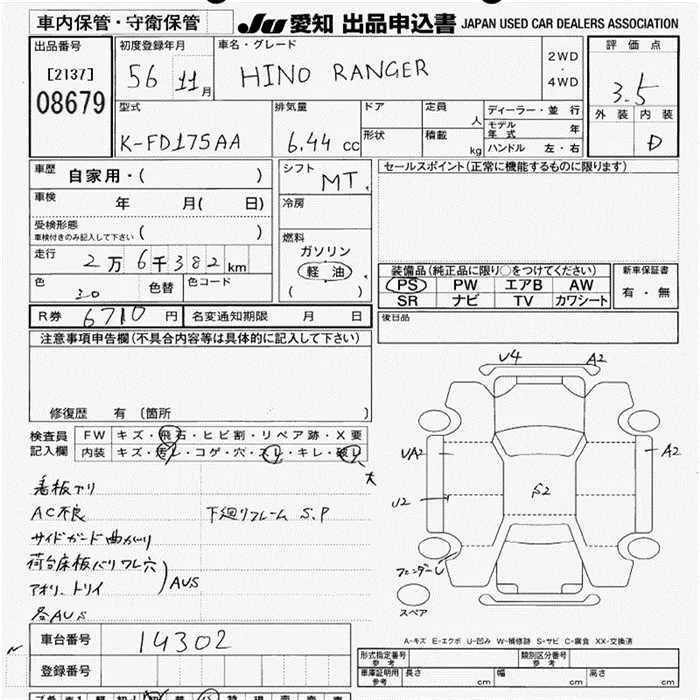 車内保管・守衛保管
JU 愛知 出品申込書 JAPAN USED CAR DEALERS ASSOCIATION
出品番号 初度登録年月 車名・グレード 評価点
[2137] 56 11月 HINO RANGER 2WD ・ 4WD 3.5
08679
型式 排気量 ドア 定員 人 ディーラー・並行 外装 内装
K-FD175AA 6.44 cc 形状 積載 kg モデル年式 年 D
ハンドル 左・右
車歴 自家用・( ) シフト MT セールスポイント(正常に機能するものに限ります)
車検 年 月( 日) 冷房
受検形態 ( )
車検付きのみ記入して下さい
燃料
走行 2万6千382km ガソリン
軽油
( )
装備品(純正品に限り○をつけてください) 新車保証書
色 色替 色コード PS PW エアB AW 有・無
SR ナビ TV カワシート
R券 6710 円 名変通知期限 月 日 後日品
注意事項申告欄(不具合内容等は具体的に記入して下さい)
修復歴 有 (箇所 )
検査員記入欄 FW キズ・飛石・ヒビ割・リペア跡・X要
内装 キズ・汚レ・コゲ・穴・スレ・キレ・破レ 大
U4 A2
UA2 A2
U2 S2
看板アリ
AC不良 下廻リフレーム S.P
サイドガード曲がり
荷台床板バリワレ穴
アオリ、トリイ AUS
各AUS
フェンダー
スペア
A-キズ E-エクボ U-凹み W-補修跡 S-サビ C-腐食 XX-交換済
車台番号 14302
登録番号
形式指定番号 参考 類別区分番号 参考
車庫証明用 参考 長さ cm 幅 cm 高さ cm